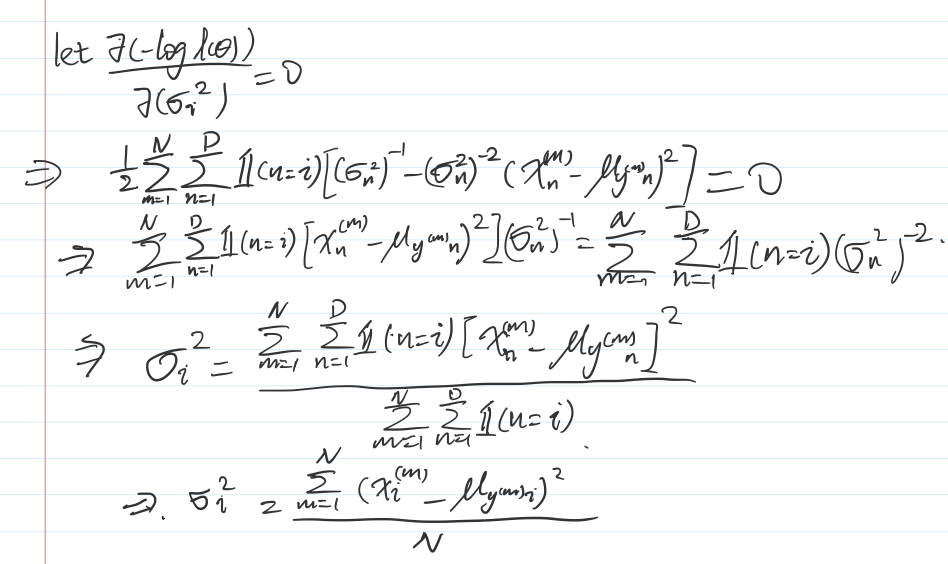 let ∂(-log l(θ)) / ∂(σ_i^2) = 0
⇒ 1/2 ∑_{m=1}^{N} ∑_{n=1}^{D} 𝟙(n=i) [(σ_n^2)^{-1} - (σ_n^2)^{-2} (x_n^{(m)} - μ_{y^{(m)}n})^2] = 0
⇒ ∑_{m=1}^{N} ∑_{n=1}^{D} 𝟙(n=i) [x_n^{(m)} - μ_{y^{(m)}n})^2] (σ_n^2)^{-1} = ∑_{m=1}^{N} ∑_{n=1}^{D} 𝟙(n=i) (σ_n^2)^{-2}.
⇒ σ_i^2 = ∑_{m=1}^{N} ∑_{n=1}^{D} 𝟙(n=i) [x_n^{(m)} - μ_{y^{(m)}n}]^2 / ∑_{m=1}^{N} ∑_{n=1}^{D} 𝟙(n=i).
⇒. σ_i^2 = ∑_{m=1}^{N} (x_i^{(m)} - μ_{y^{(m)}i})^2 / N